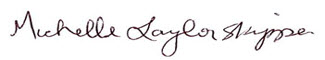 Michelle Taylor Skipper